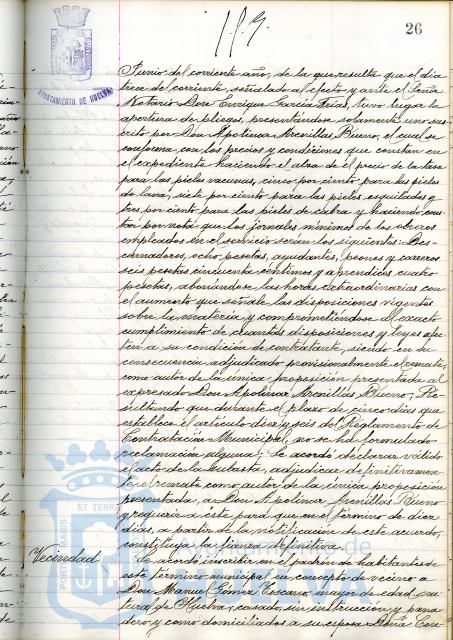 26
AYUNTAMIENTO DE HUELVA
Junio del corriente año, de la que resulta que el dia
trece del corriente, señalado al efecto y ante el Señor
Notario Don Enrique García Frías, tuvo lugar la
apertura de pliegos, presentándose solamente uno sus-
crito por Don Apolinar Arenillas Bueno, el cual se
conforma con los precios y condiciones que constan en
el expediente haciendo el alza de el precio de la tasa
para las pieles vacunas, cinco por ciento para las pieles
de lana, siete por ciento para las pieles esquiladas y
tres por ciento para las pieles de cabra y haciendo cons-
tar por nota que los jornales mínimos de los obreros
empleados en el servicio serán los siguientes: Des-
carnadores, ocho pesetas, ayudantes, peones y carreros
seis pesetas cincuenta céntimos y aprendices cuatro
pesetas, abonándose las horas extraordinarias con
el aumento que señale las disposiciones vigentes
sobre la materia y comprometiéndose al exacto
cumplimiento de cuantas disposiciones y leyes afec-
ten a su condición de contratante, siendo en su
consecuencia adjudicado provisionalmente el remate,
como autor de la única proposición presentada al
expresado Don Apolinar Arenillas Bueno; Re-
sultando que durante el plazo de cinco días que
establece el artículo diez y seis del Reglamento de
Contratación Municipal, no se ha formulado
reclamación alguna; Se acordó declarar válido
el acto de la subasta, adjudicar definitivamen-
te el remate como autor de la única proposición
presentada, a Don Apolinar Arenillas Bueno
y requerir a éste para que en el término de diez
días, a partir de la notificación de este acuerdo,
constituya la fianza definitiva.
Vecindad
Se acordó inscribir en el padrón de habitantes de
este término municipal en concepto de vecino a
Don Manuel Gómez mayor de edad, natu-
ral de Huelva, casado, sin instrucción y pana-
dero y como domiciliados a su esposa Doña
Ayuntamiento de
PORTUS MARIS ET TERRAE